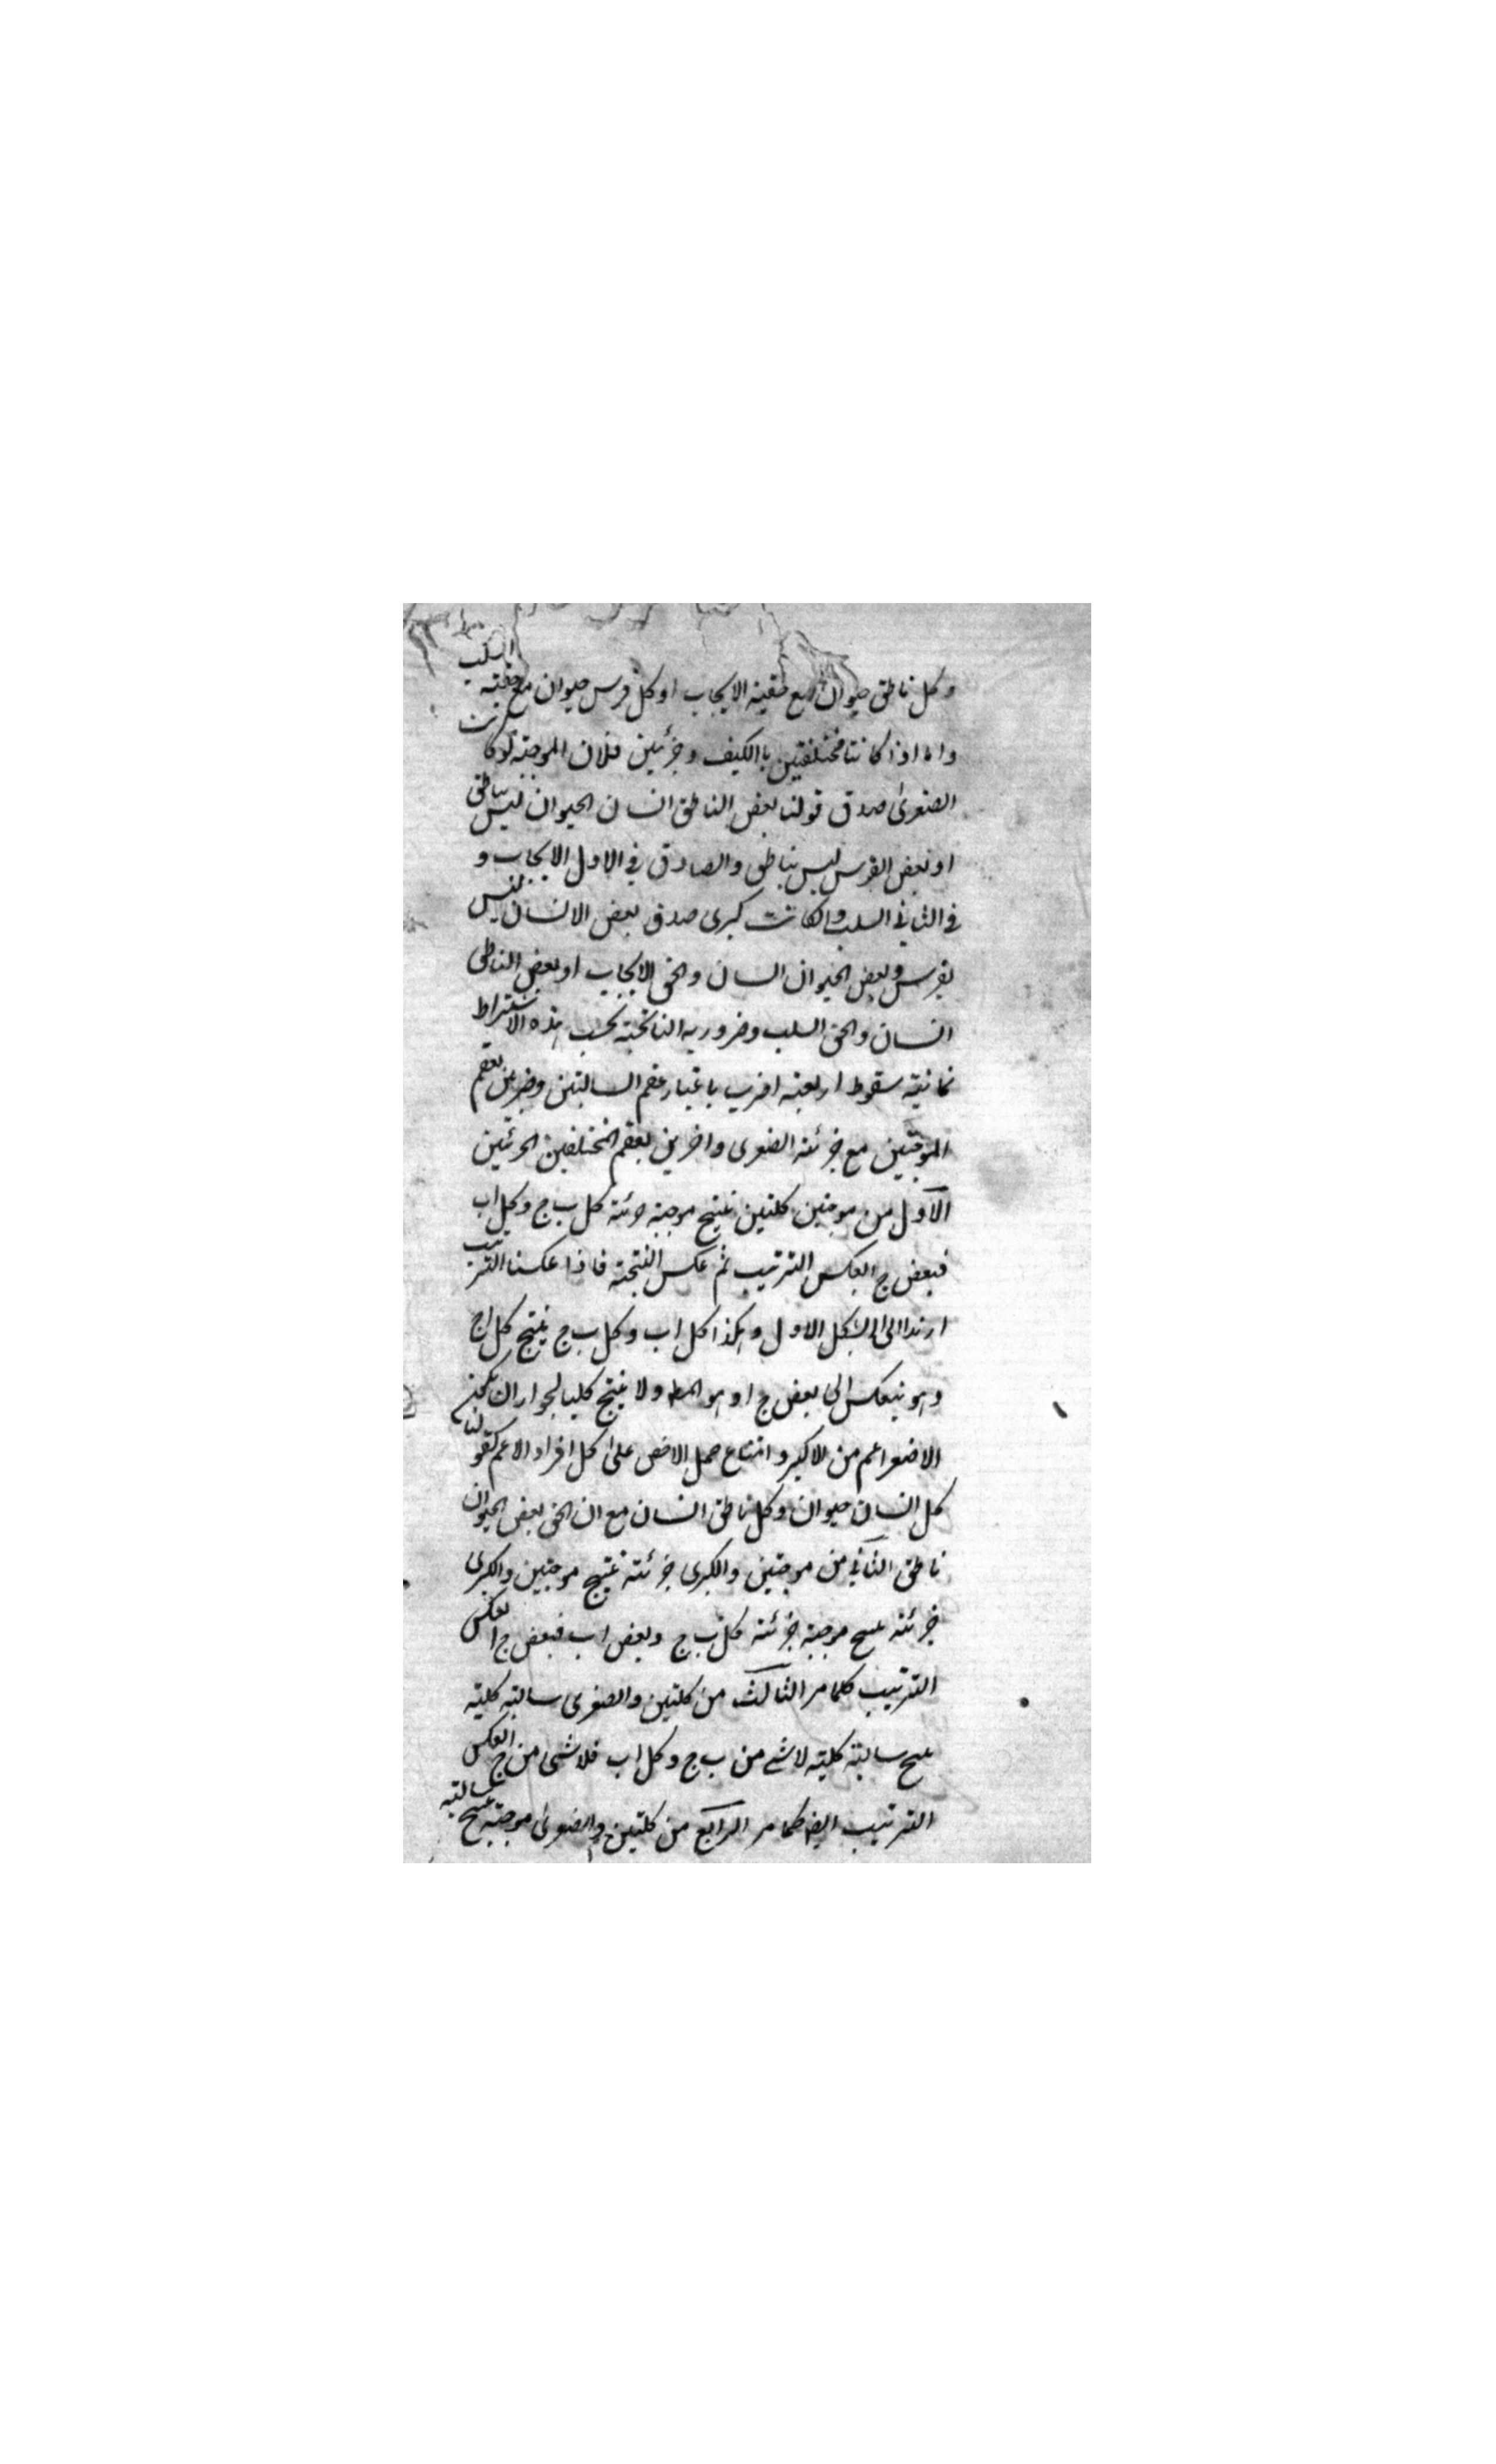 وكل ناطق حيوان مع حقية الايجاب او كل فرس حيوان مع حقية السلب
واما اذا كانتا مختلفتين بالكيف وجزئيتين فلان الموجبة لو كانت
الصغرى صدق قولنا بعض الناطق انسان الحيوان ليس بناطق
او بعض الفرس ليس بناطق والصادق في الاول الايجاب و
في الثاني السلب والكانت كبرى صدق بعض الانسان ليس
بفرس وبعض الحيوان انسان والحق الايجاب او بعض الناطق
انسان والحق السلب وضروبه الناتجة بحسب هذه الاشتراط
ثمانية سقوط اربعة اضرب باعتبار عقم السالبتين وضربين بعقم
الموجبتين مع جزئية الصغرى واخرين بعقم المختلفين الجزئيتين
الاول من موجبتين كليتين ينتج موجبة جزئية كل ب ج وكل ا ب
فبعض ج ا بعكس الترتيب ثم عكس النتيجة فاذا عكسنا الترتيب
ارتد الى الشكل الاول وهكذا كل ا ب وكل ب ج ينتج كل ا ج
وهو ينعكس الى بعض ج ا وهو المط ولا ينتج كليا لجواز ان يكون
الاصغر اعم من الاكبر وامتناع حمل الاخص على كل افراد الاعم كقولنا
كل انسان حيوان وكل ناطق انسان مع ان الحق بعض الحيوان
ناطق الثاني من موجبتين والكبرى جزئية ينتج موجبتين والكبرى
جزئية ينتج موجبة جزئية كل ب ج وبعض ا ب فبعض ج ا بعكس
الترتيب كما مر الثالث من كليتين والصغرى سالبة كلية
ينتج سالبة كلية لا شي من ب ج وكل ا ب فلا شي من ج ا بعكس
الترتيب ايضا كما مر الرابع من كليتين والصغرى موجبة ينتج سالبة